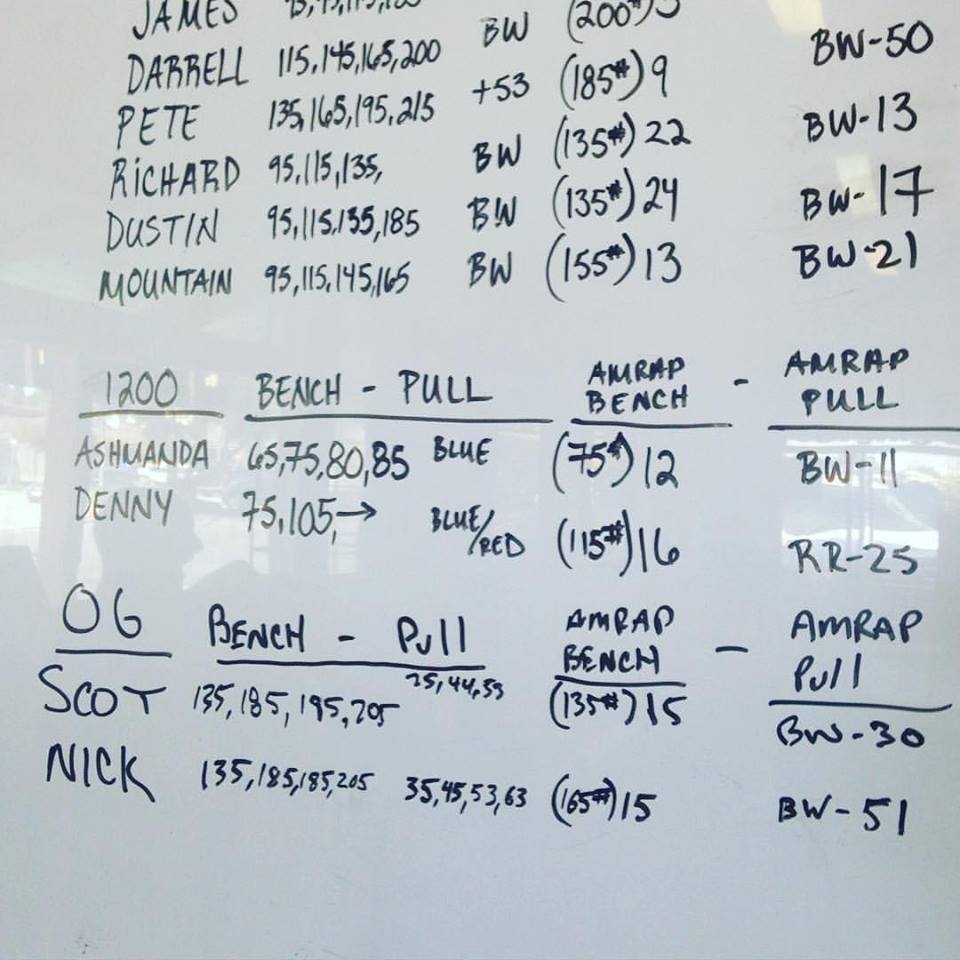 JAMES
DARRELL 115,145,165,200 BW (200#)
PETE 135,165,195,215 +53 (185#) 9 BW-50
RiCHARD 95,115,135, BW (135#) 22 BW-13
DUSTIN 95,115,135,185 BW (135#) 24 BW-17
MOUNTAIN 95,115,145,165 BW (155#) 13 BW-21
1200 BENCH - PULL AMRAP BENCH - AMRAP PULL
ASHUANDA 65,75,80,85 BLUE (75#) 12 BW-11
DENNY 75,105,→ BLUE/RED (115#) 16 RR-25
OG BENCH - Pull AMRAP BENCH - AMRAP Pull
SCOT 135,185,195,205 35,44,53 (135#) 15 BW-30
NICK 135,185,185,205 35,45,53,63 (165#) 15 BW-51